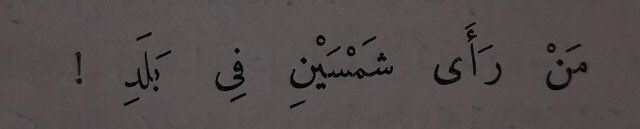 مَنْ رَأَى شَمْسَيْنِ فِي بَلَدِ !